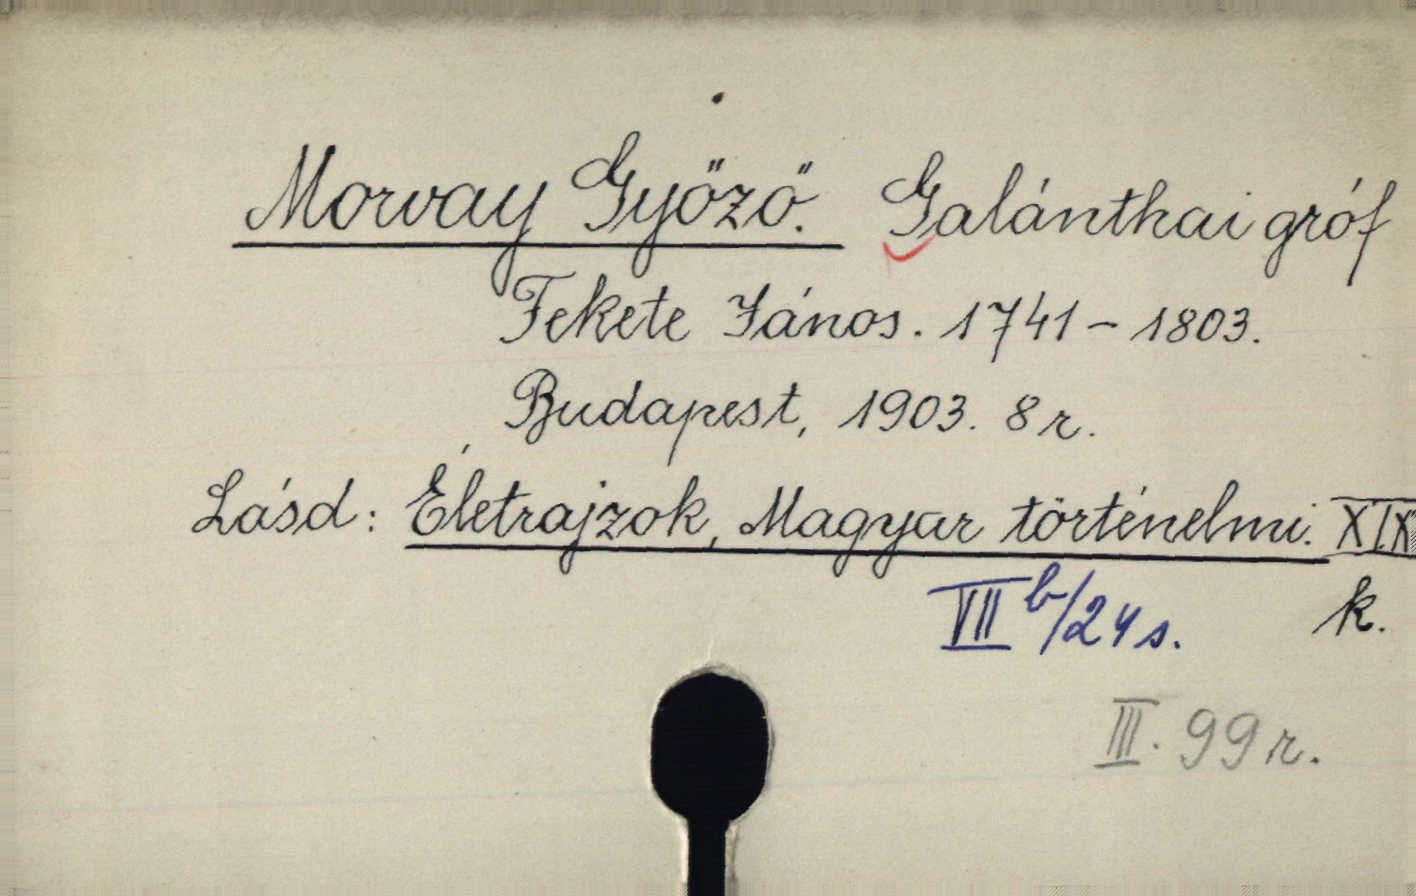 Morvay Győző. Galánthai gróf
Fekete János. 1741 - 1803.
Budapest, 1903. 8 r.
Lásd: Életrajzok, Magyar történelmi. XIX
k.
VII b/24 s.
III. 99 r.